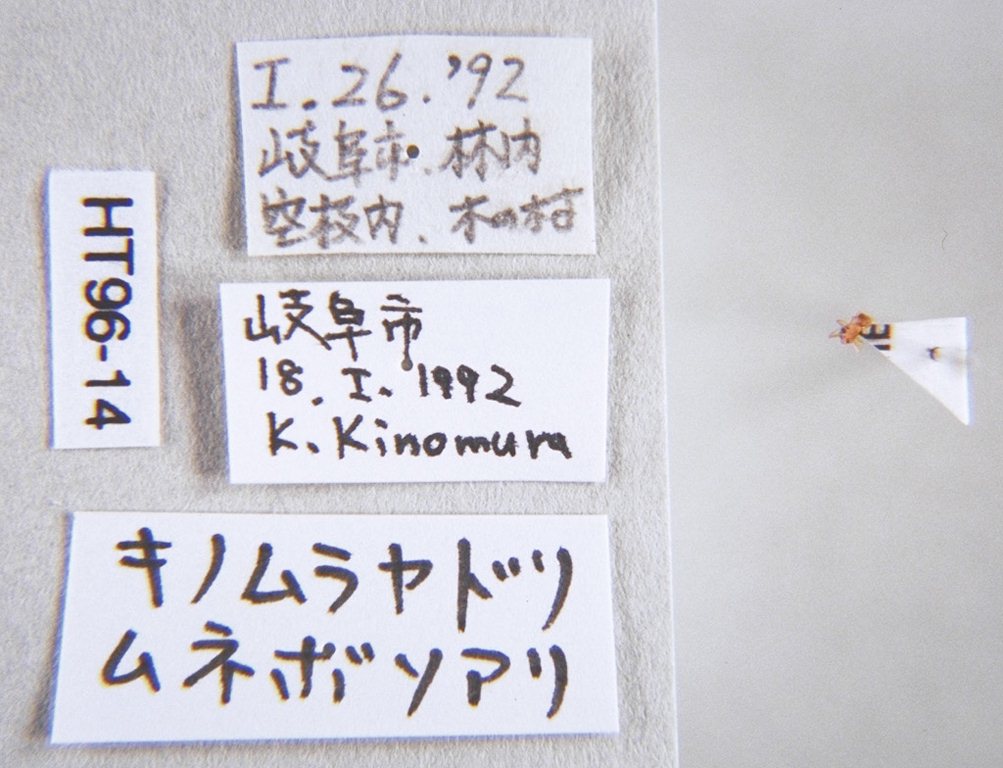 I. 26. '92
岐阜市. 林内
空枝内. 木の村
HT96-14
岐阜市
18. I. 1992
K. Kinomura
キノムラヤドリ
ムネボソアリ